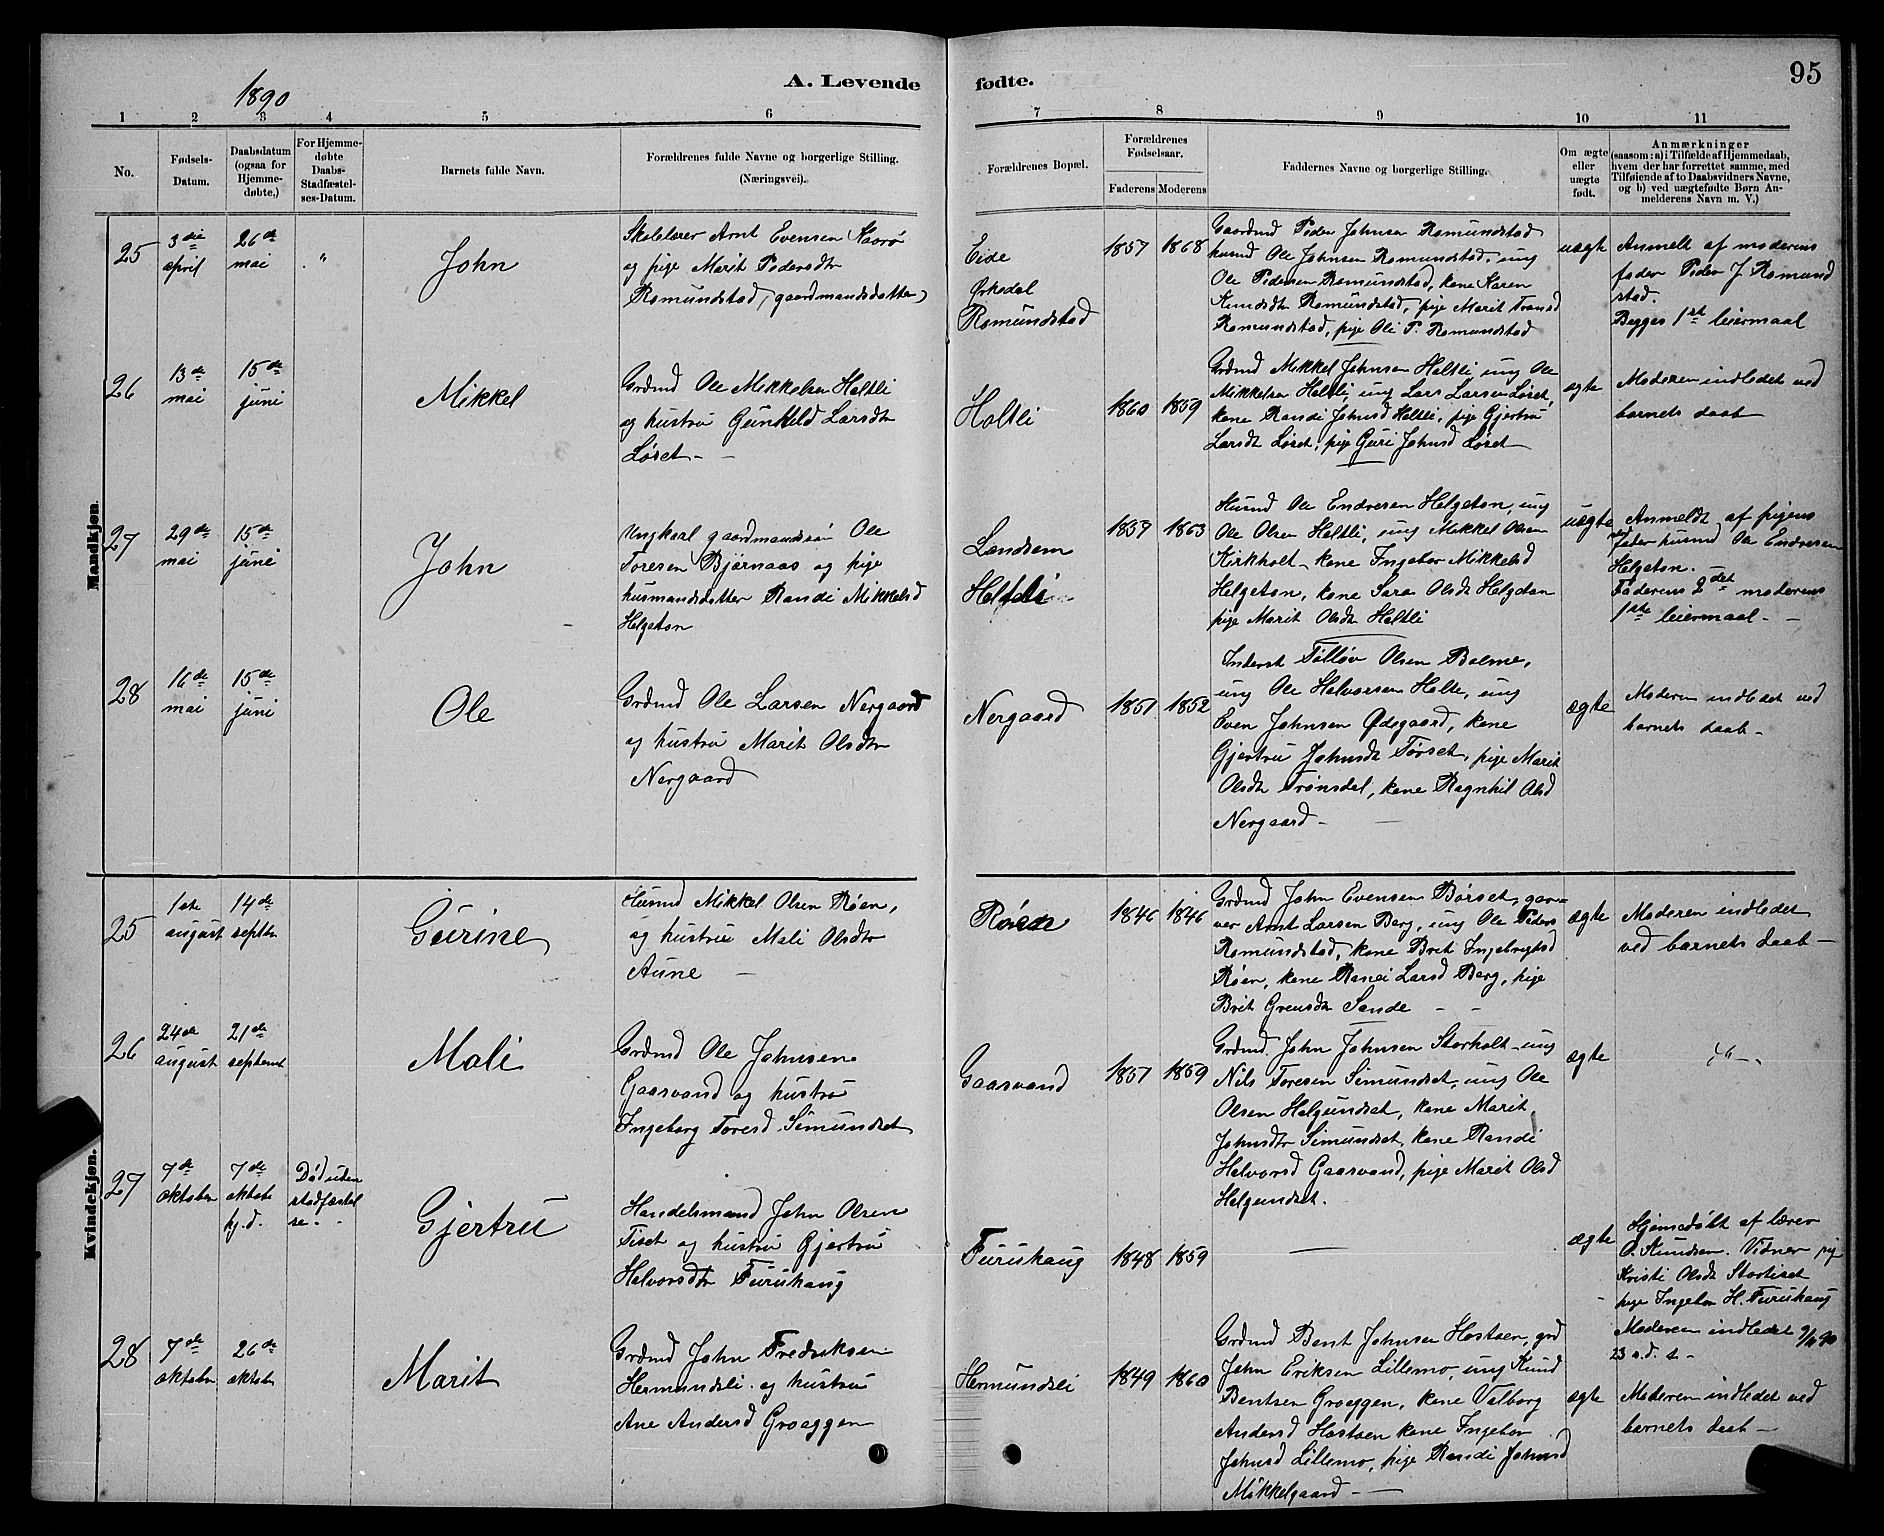 1890
A. Levende
fødte.
95
1 2 3 4 5 6 7 8 9 10 11
No.
Fødsels-
Datum.
Daabsdatum
(ogsaa for
Hjemme-
døbte.)
For Hjemme-
døbte
Daabs-
Stadfæstel-
ses-Datum.
Barnets fulde Navn.
Forældrenes fulde Navne og borgerlige Stilling.
(Næringsvei).
Forældrenes Bopæl.
Forældrenes
Fødselsaar.
Faderens Moderens
Faddernes Navne og borgerlige Stilling.
Om ægte
eller
uægte
født.
Anmærkninger
(saasom: a) i Tilfælde af Hjemmedaab,
hvem der har forrettet samme, med
Tilføiende af to Daabsvidners Navne,
og b) ved uægtefødte Børn An-
melderens Navn m. V.)
Mandkjøn.
25
3die
april
26de
mai
"
John
Skolelærer Arnt Evensen Kaarø
og pige Marit Pedersdtr
Romundstad (gaardmandsdatter)
Eide
Ørkedal
Romundstad
1857 1868
Gaardmd Peder Johnsen Romundstad
husmd Ole Johnsen Romundstad, ung
Ole Pedersen Romundstad, kone Karen
Knudsdtr Romundstad, pige Marit Tronsd
Romundstad, pige Oli P. Romundstad
uægte
Anmeldt af moderens
fader Peder J. Romund
stad.
Begges 1st leiermaal
26
13de
mai
15de
juni
Mikkel
Grdmd Ole Mikkelsen Holtli
og hustru Gunhild Larsdtr
Løset -
Holtli
1860 1859
Grdmd Mikkel Johnsen Holtli, ung Ole
Mikkelsen Holtli, ung Lars Larsen Løset,
kone Randi Johnsd Holtli, pige Gjertru
Larsdt Løset, pige Guri Johnsd Løset
ægte
Moderen indledet ved
barnets daab
27
29de
mai
15de
juni
John
Ungkarl gaardmandssøn Ole
Toresen Bjørnaas og pige
husmandsdatter Randi Mikkelsd
Helgeton
Landsem
Holtli
1837 1863
Husmd Ole Endresen Helgeton, ung
Ole Olsen Holtli, ung Mikkel Olsen
Kirkholt, kone Ingebor Mikkelsd
Helgeton, kone Sara Olsdt Helgeton
pige Marit Olsdt Holtli
uægte
Anmeldt af pigens
fader husmd Ole Endresen
Helgeton.
Faderens 2det moderens
1ste leiermaal -
28
16de
mai
15de
juni
Ole
Grdmd Ole Larsen Nergaard
og hustru Marit Olsdtr
Nergaard
Nergaard
1851 1852
Inderst Tølløv Olsen Bolme,
ung Ole Halvorsen Holte, ung
Even Johnsen Ødegaard, kone
Gjertru Johnsdt Tørset, pige Marit
Olsdt Trønsdal, kone Ragnhil Olsd
Nergaard -
ægte
Moderen indledet ved
barnets daab -
Kvindekjøn.
25
1ste
august
14de
septbr
Gurine
Husmd Mikkel Olsen Røen,
og hustru Mali Olsdtr
Aune -
Røen
1846 1846
Grdmd John Evensen Børset, gaar
ver Arnt Larsen Berg, ung Ole Peders
Romundstad, kone Brit Ingebrigtsd
Røen, kone Ranei Larsd Berg, pige
Brit Grensdt Sande -
ægte
Moderen indledet
ved barnets daab -
26
24de
august
21de
septembr
Mali
Grdmd Ole Johnsen
Gaasvand og hustru
Ingeborg Toresd Simundset
Gaasvand
1851 1859
Grdmd. John Johnsen Storholt, ung
Nils Toresen Simundset, ung Ole
Olsen Helgundset, kone Marit
Johnsdtr Simundset, kone Randi
Halvorsd Gaasvand, pige Marit Olsd
Helgundset.
ægte
27
7de
oktober
7de
oktob
hj.d.
Død uden
stadfæstel
se. -
Gjertru
Handelsmand John Olsen
Tiset og hustru Gjertru
Halvorsdtr Furuhaug
Furuhaug
1848 1859
ægte
Hjemedøbt af lærer
O. Knudsen. Vidner pig
Kristi Olsdt Stortiset
pige Ingebor H. Furuhaug
Moderen indledet 9/11 90
23 s.d. t -
28
7de
oktober
26de
oktob
Marit
Grdmd John Fredriksen
Hermundsli og hustru
Ane Andersd Groeggen
Hermundsli
1849 1860
Grdmd Bent Johnsen Hostoen, grd
John Eriksen Lillemo, ung Knud
Bentsen Groeggen, kone Valborg
Andersd Hostoen kone Ingebor
Johnsd Lillemo, pige Randi Johnsd
Mikkelgaard -
ægte
Moderen indledet ved
barnets daab -